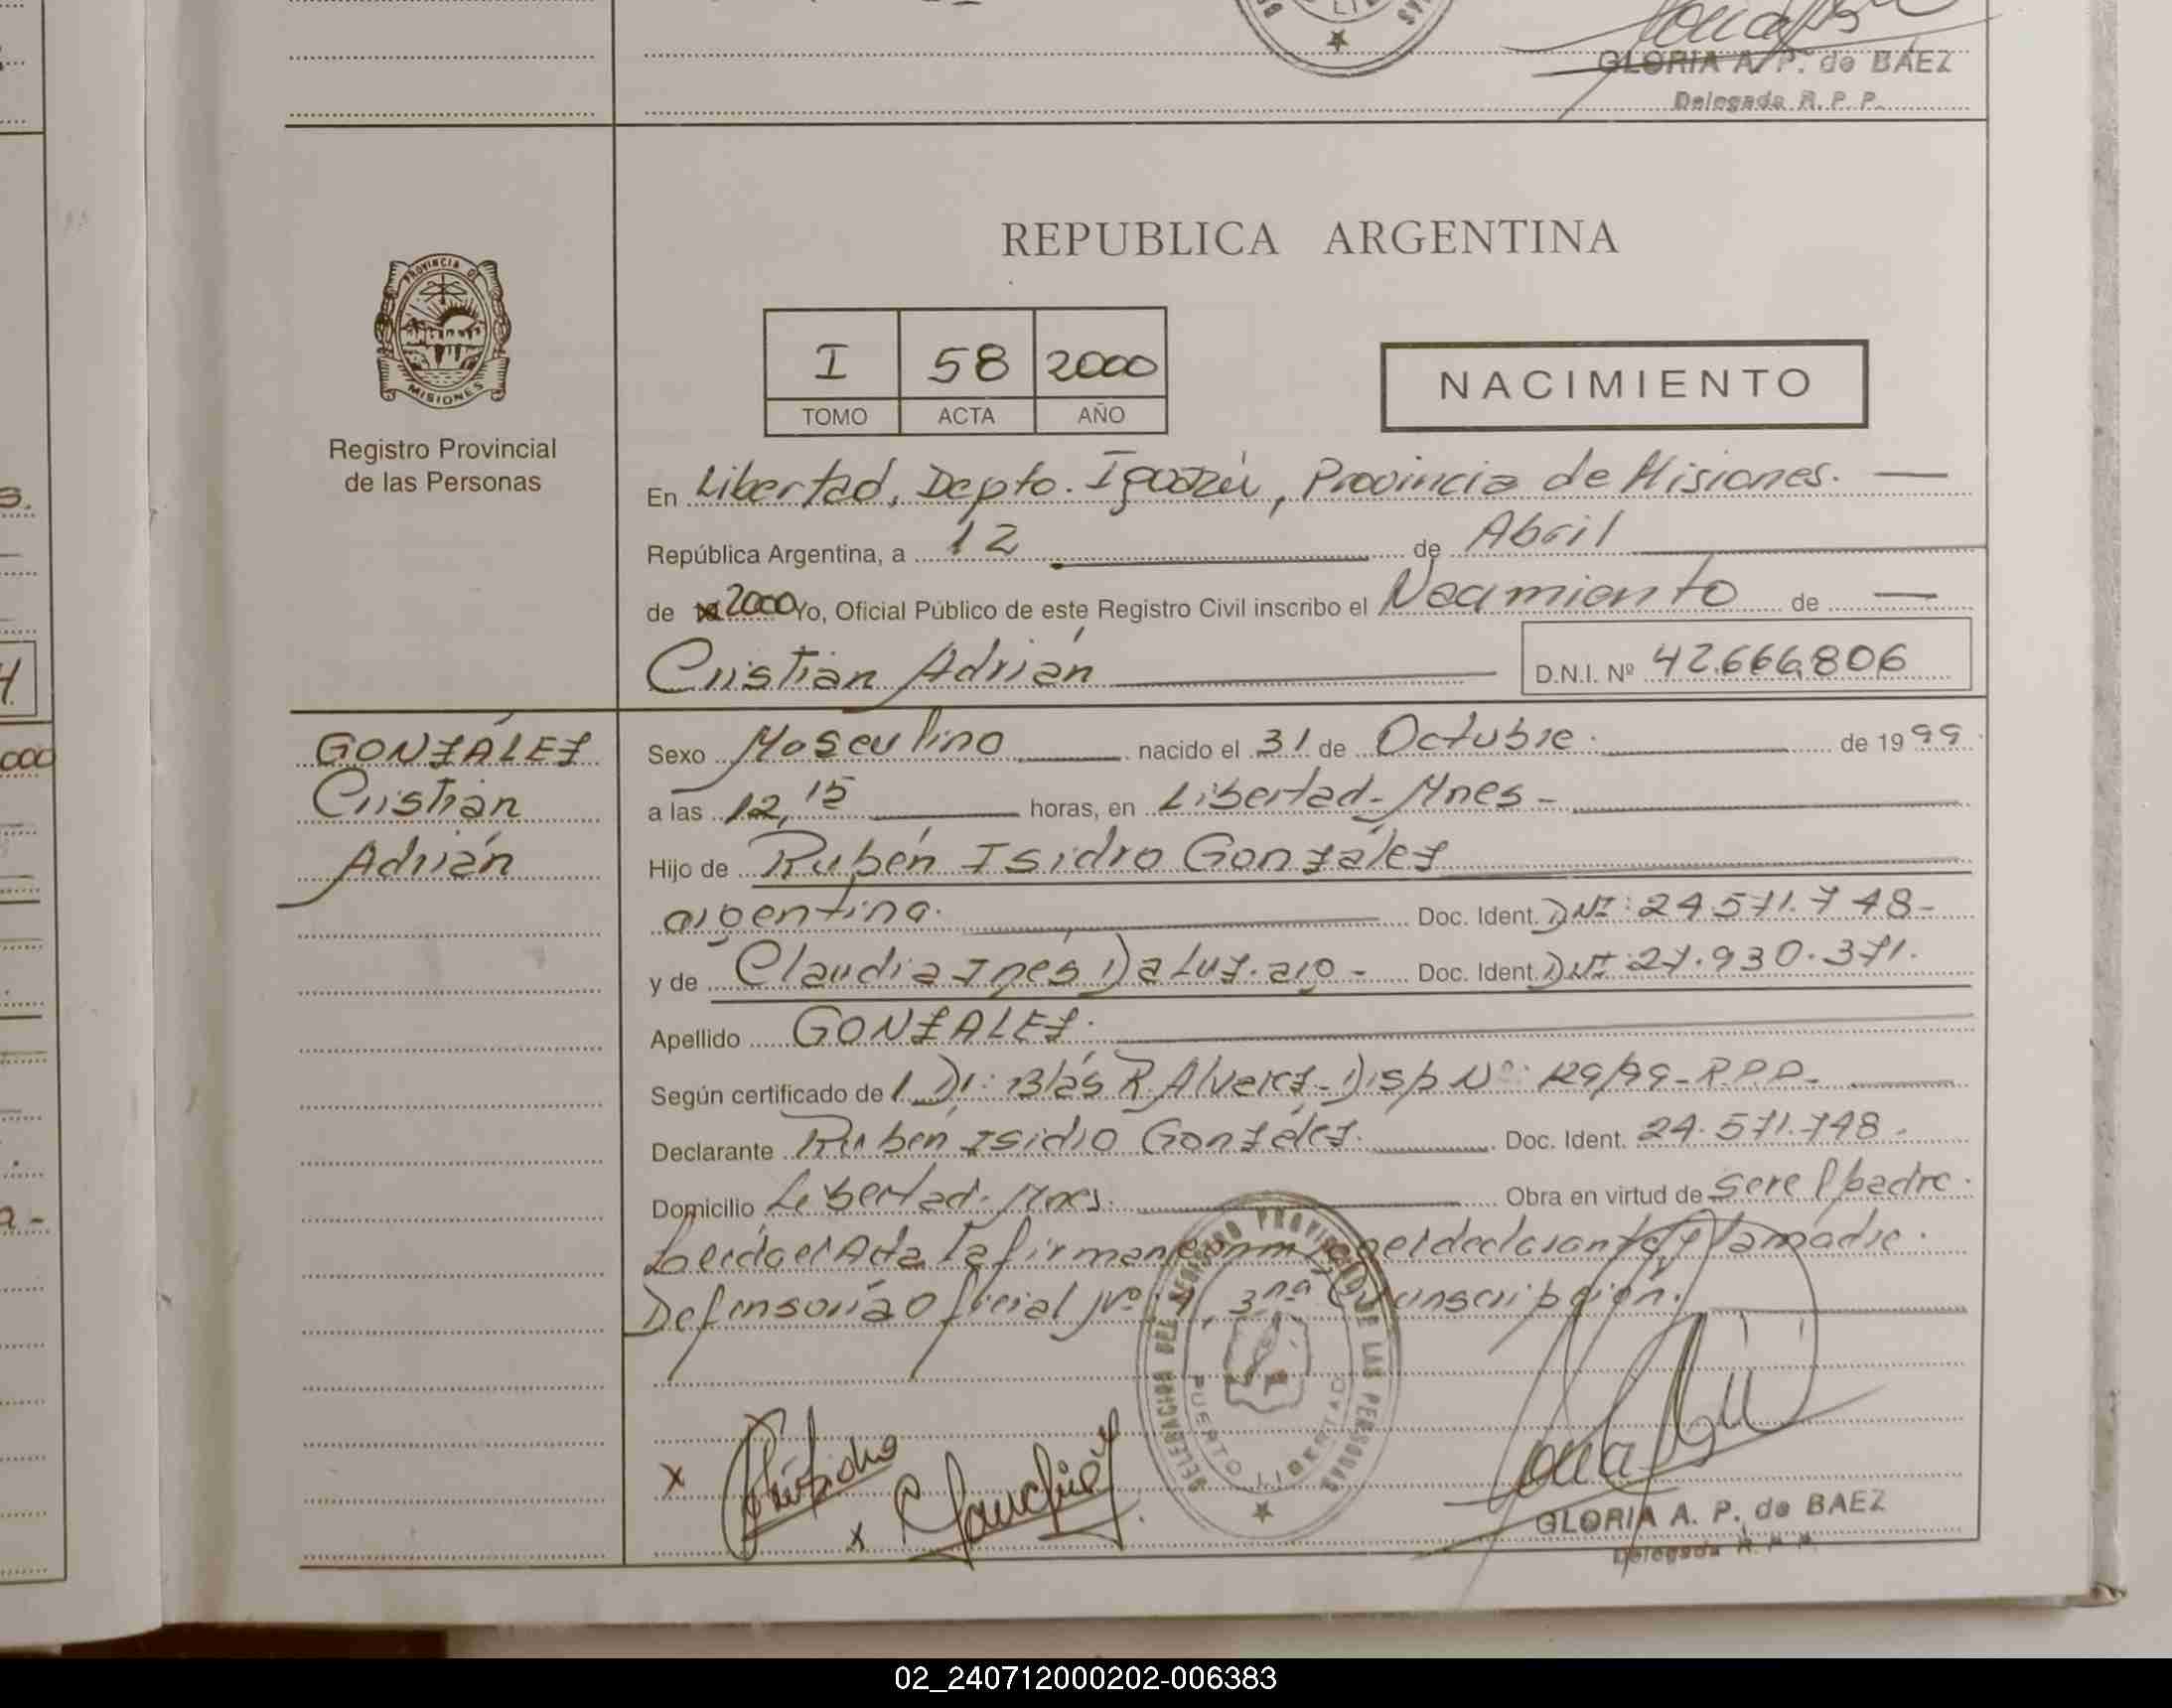 GLORIA A. P. de BÁEZ
Delegada R. P. P.
REPUBLICA ARGENTINA
PROVINCIA DE
MISIONES
Registro Provincial
de las Personas
I 58 2000
TOMO ACTA AÑO
NACIMIENTO
En Libertad, Depto. Iguazú, Provincia de Misiones. —
República Argentina, a 12 de Abril
de 2000 Yo, Oficial Público de este Registro Civil inscribo el Nacimiento de —
Cristian Adrián D.N.I. Nº 42.666.806
GONZÁLEZ
Cristian
Adrián
Sexo Masculino nacido el 31 de Octubre. de 1999
a las 12,15 horas, en Libertad- Mnes -
Hijo de Rubén Isidro González
argentina. Doc. Ident. DNI: 24.571.748-
y de Claudia Inés Da Luz. arg - Doc. Ident. DNI: 27.930.371.
Apellido GONZALEZ.
Según certificado de 1 Dr: Blás R. Alverez- Disp Nº: 129/99- R.P.P.
Declarante Rubén Isidro González. Doc. Ident. 24.571.748.
Domicilio Libertad- Mnes. Obra en virtud de ser el padre.
Leída el Acta la firman conmigo el declarante y la madre.
Defensoría Oficial Nº 1, 3ra Circunscripción.
DELEGACION DEL REGISTRO PROVINCIAL DE LAS PERSONAS
PUERTO LIBERTAD
x x
GLORIA A. P. de BAEZ
Delegada R. P. P.
02_240712000202-006383